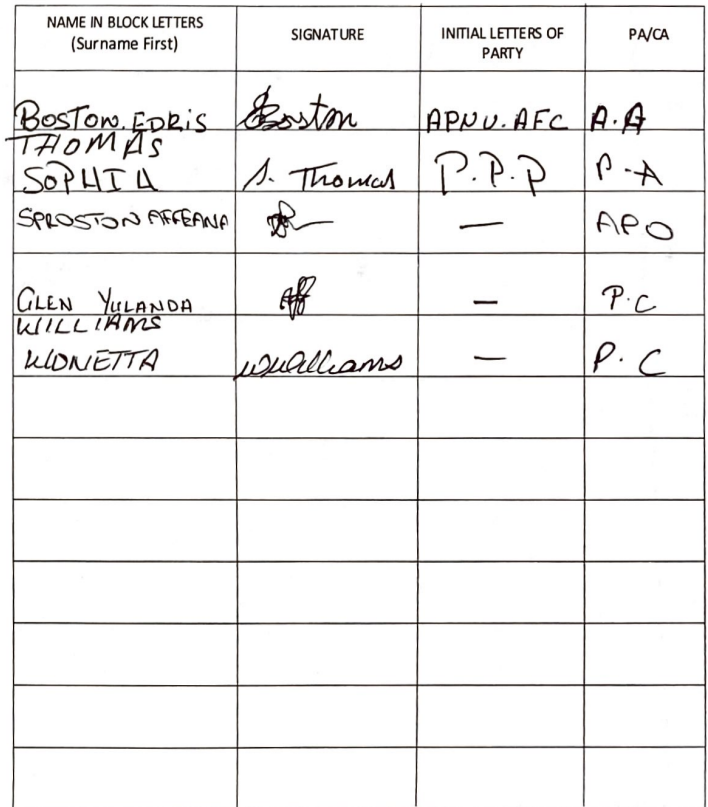 NAME IN BLOCK LETTERS SIGNATURE INITIAL LETTERS OF PA/CA
(Surname First) PARTY
BOSTON. EDRIS Boston APNU.AFC A.A
THOMAS
SOPHIA S. Thomas P.P.P P.A
SPROSTON AFFEANA — APO
GLEN YULANDA — P.C
WILLIAMS
WONETTA WWilliams — P.C